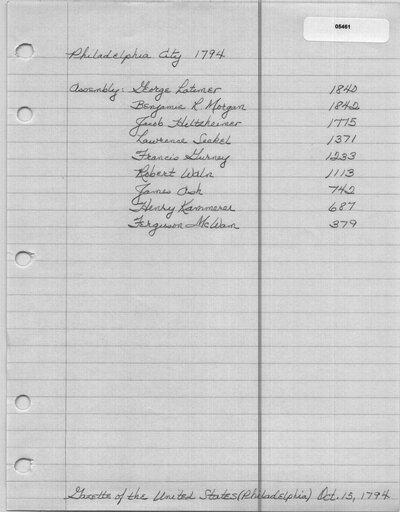 05461
Philadelphia City 1794
Assembly: George Latimer 1840
Benjamin R. Morgan 1842
Jacob Hiltzheimer 1775
Lawrence Seckel 1371
Francis Gurney 1233
Robert Waln 1113
James Ash 742
Henry Kammerer 687
Ferguson McIlvain 379
Gazette of the United States (Philadelphia) Oct. 15, 1794